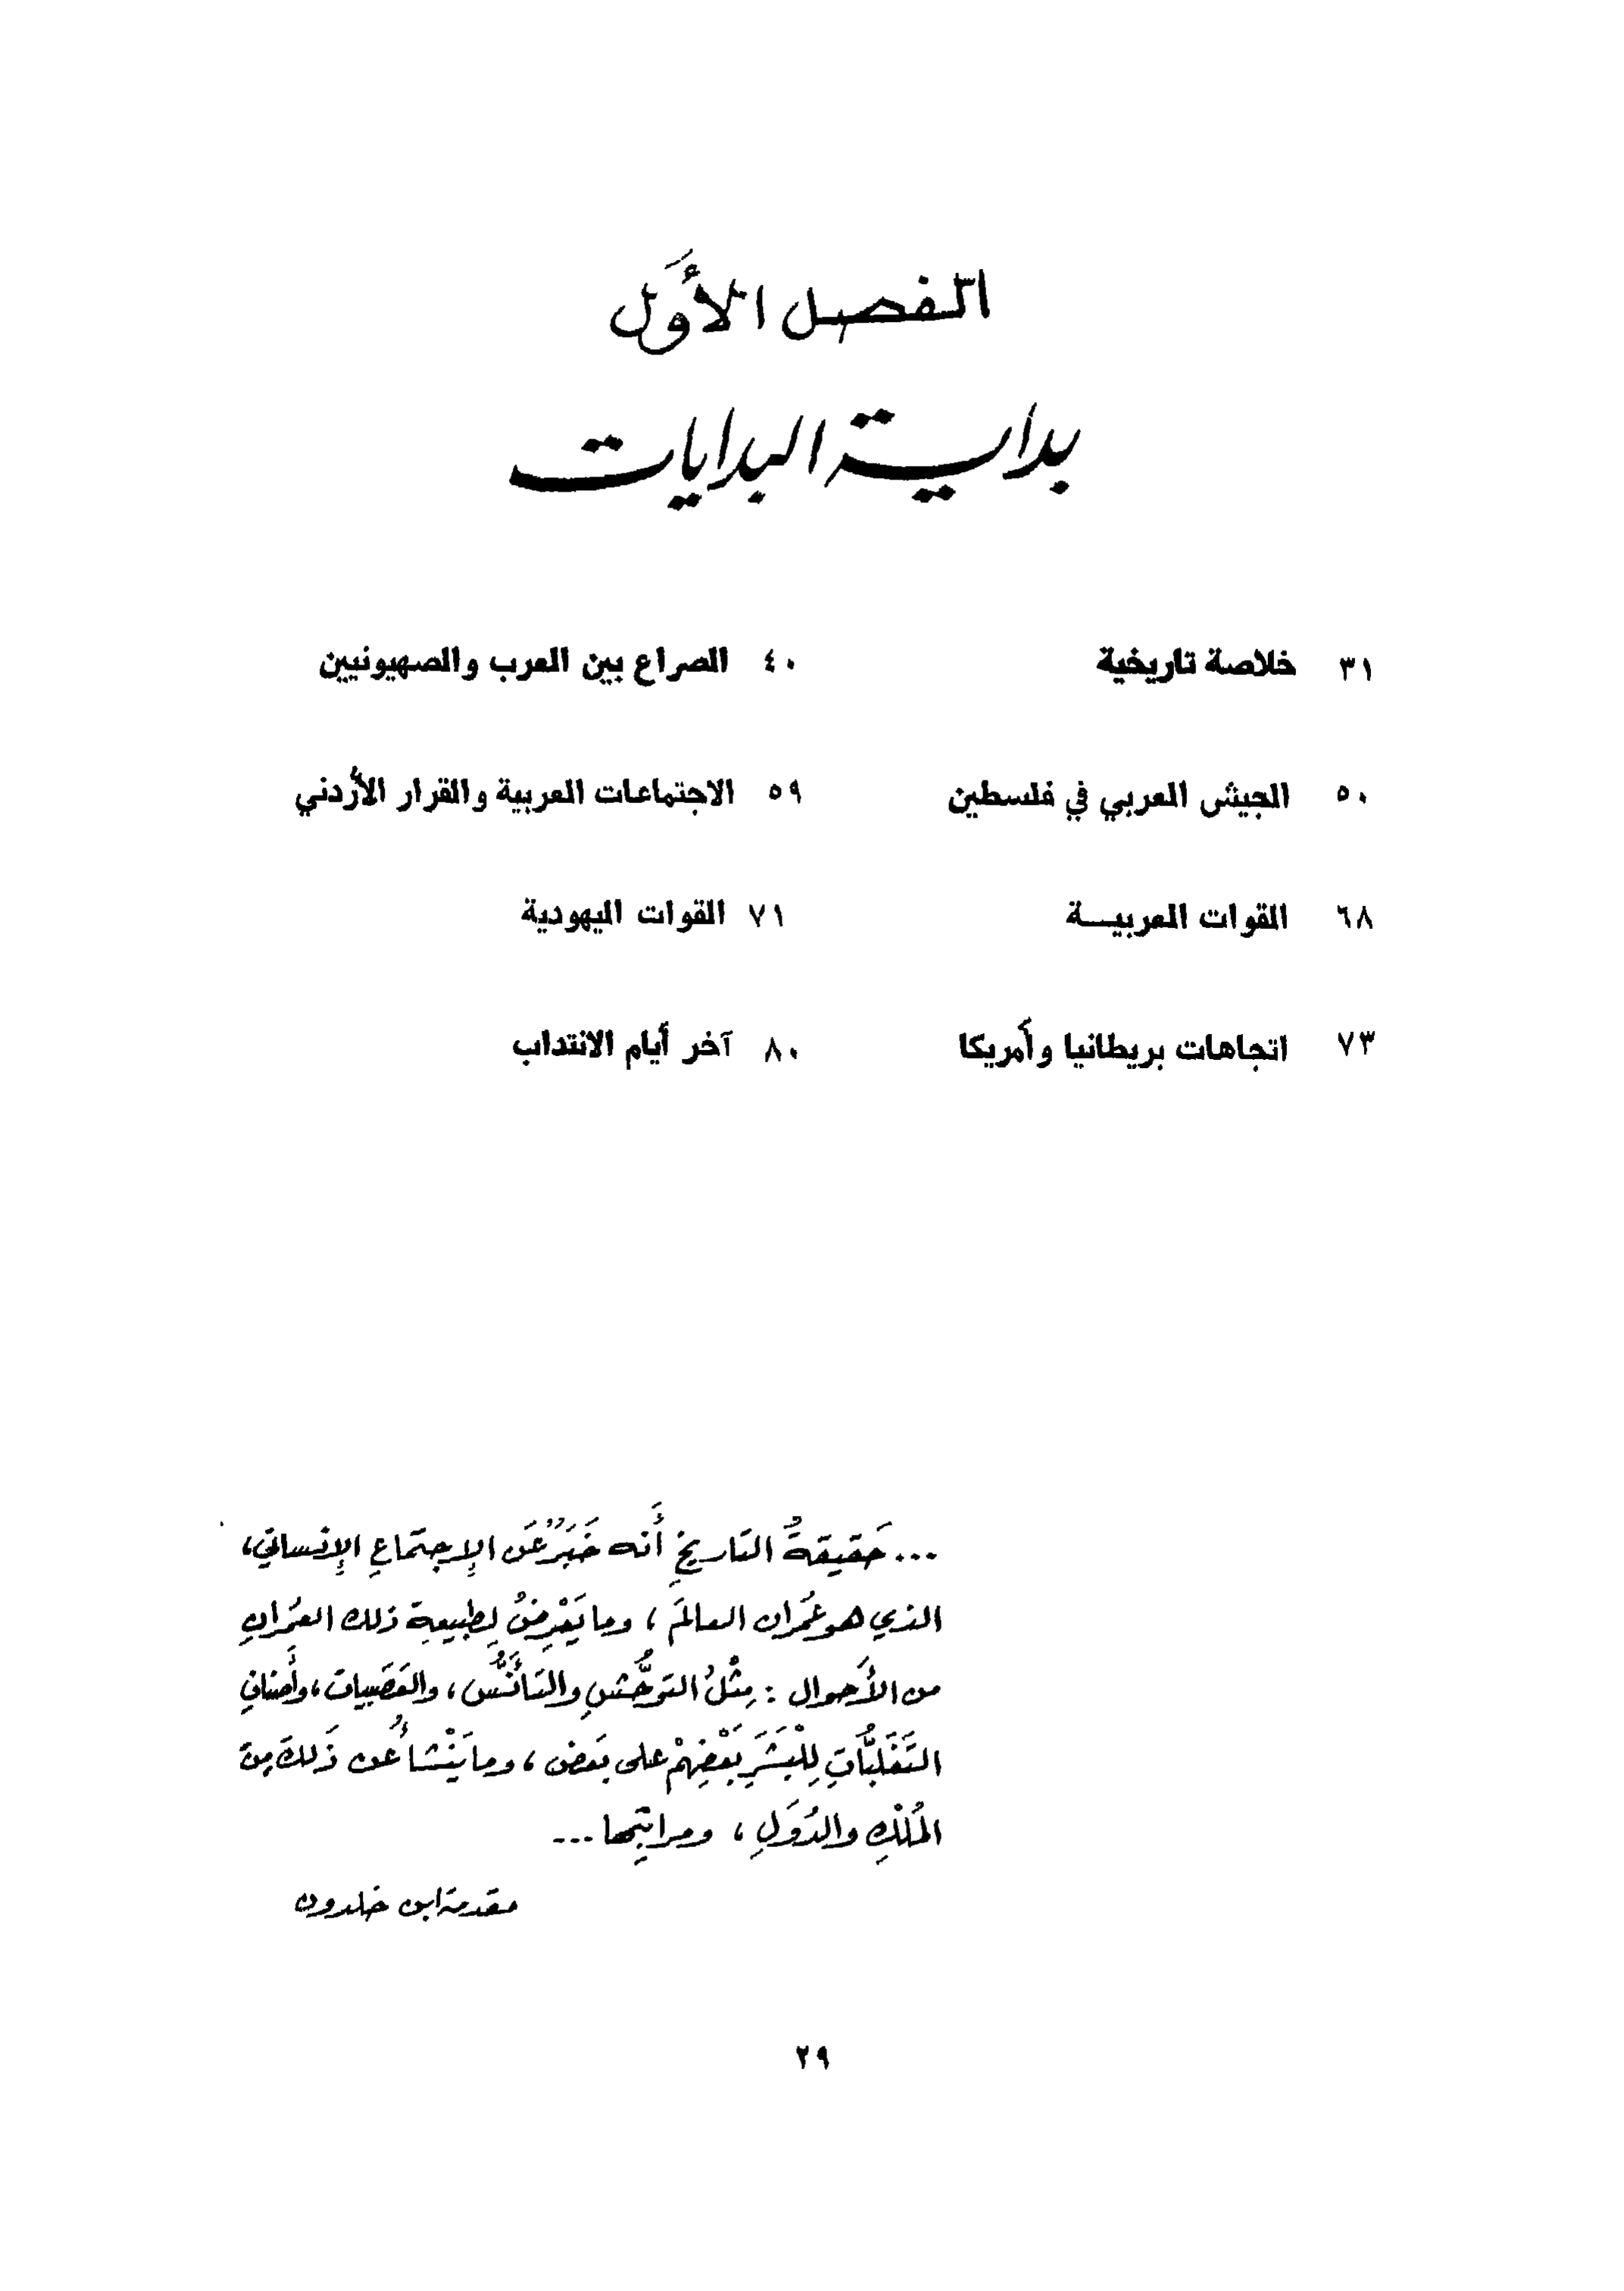 الفصل الأوَل
بداية البدايات
٣١ خلاصة تاريخية
٤٠ الصراع بين العرب والصهيونيين
٥٠ الجيش العربي في فلسطين
٥٩ الاجتماعات العربية والقرار الأردني
٦٨ القوات العربيـــة
٧١ القوات اليهودية
٧٣ اتجاهات بريطانيا وأمريكا
٨٠ آخر أيام الانتداب
... حَقيقةُ التاريخِ أَنه خَبَرٌ عَن الإجتماعِ الإنساني،
الذي هو عُمَران العالمَ ، وما يَعْرِضُ لِطبيعةِ ذلك العمُرانِ
من الأَحوال : مِثْلُ التوحُّشِ والتَأنُّس ، والعَصَبيات ، وأَصنافِ
التَغَلبُّاتِ لِلْبَشَرِ بَعْضِهِمْ على بَعض ، وما يَنْشأُ عن ذَلكَ مِنَ
المُلْكِ والدُوَلِ ، ومراتبِها ...
مقدمة ابن خلدون
٢٩